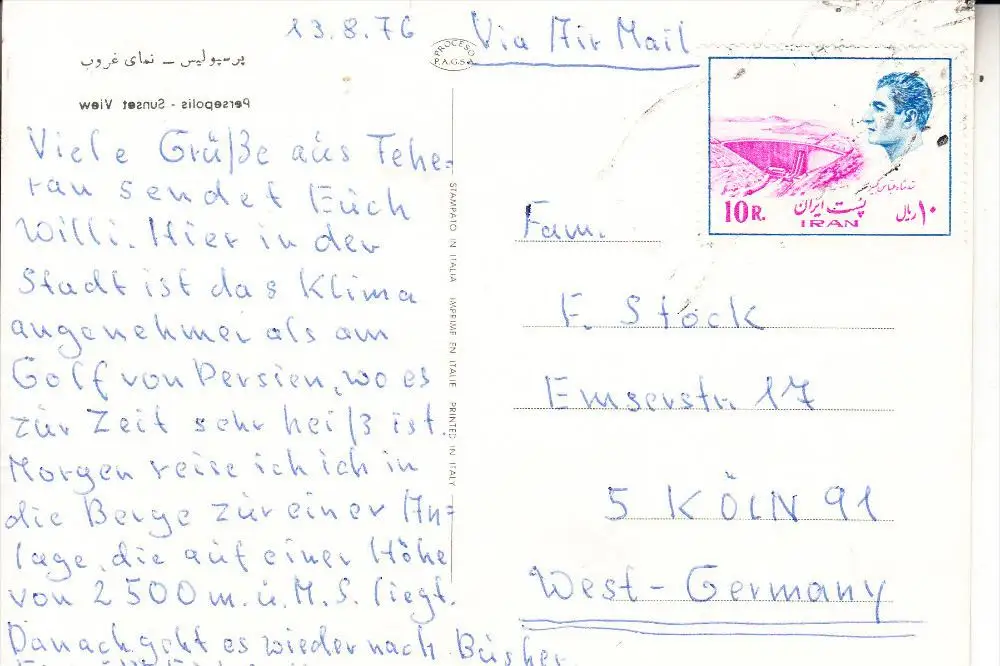 13.8.76
Via Air Mail
PROCESO
P.A.G.S.A
پرسپولیس – نمای غروب
Persepolis - Sunset View
Viele Grüße aus Tehe=
ran sendet Euch
Willi. Hier in der
Stadt ist das Klima
angenehmer als am
Golf von Persien, wo es
zur Zeit sehr heiß ist.
Morgen reise ich ich in
die Berge zur einer An=
lage, die auf einer Höhe
von 2500 m. ü. M. S. liegt.
Danach geht es wieder nach Busher.
STAMPATO IN ITALIA IMPRIME EN ITALIE PRINTED IN ITALY
10R.
پست ایران
۱۰ ریال
IRAN
Fam.
F. Stock
Emserstr. 17
5 KÖLN 91
West-Germany